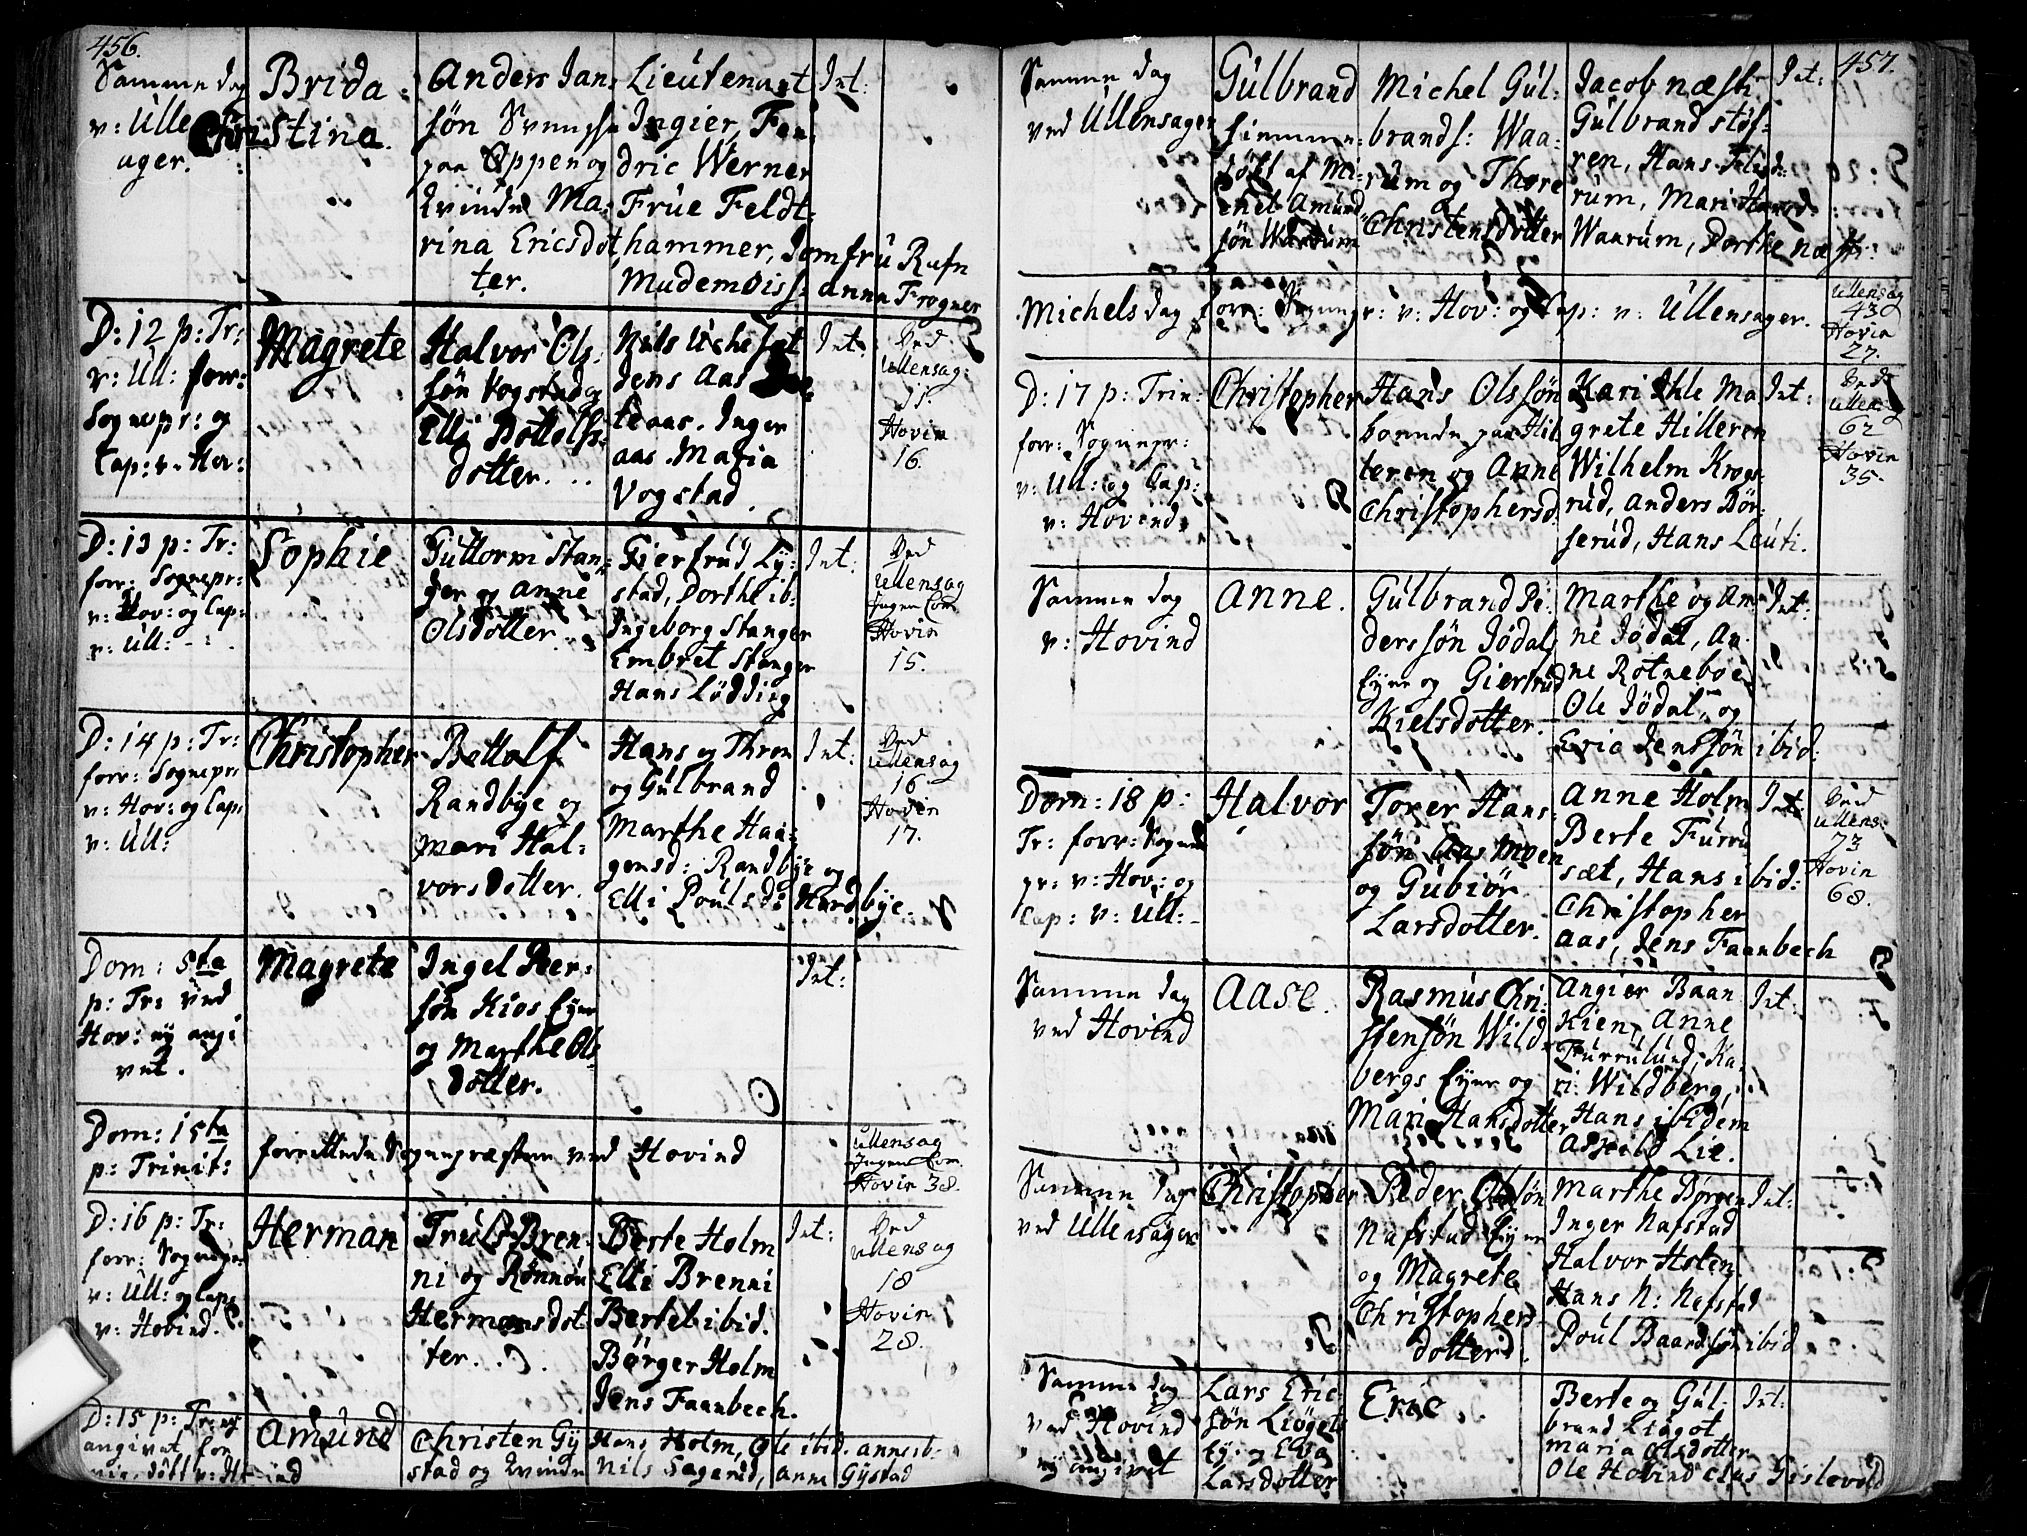 456.
Samme dag
v: Ulle
ager.
Brida
Christina.
Anders Jan
søn
paa Oppen og
Kvinde Ma:
rina Ericsdot
ter.
Lieutenant
Ingier, Fen
dric Werner
Frue Feldt:
hammer, Jomfru Rafn
Mademoiss: anna Frogner
Int:
D: 12 p: Tr:
v: Ull: forr:
Sognepr: og
Cap: v: Hov:
Magrete
Halvor Ols:
søn Vogstad og
Elli Bottolfs
dotter.
Nils
Jens Aas
teaas. Inger
aas. Maria
Vogstad.
Int.
Ved
Ullensag:
11.
Hovin
16.
D: 13 p: Tr:
forr: Sognepr:
v: Hov: og Cap:
v: Ull:
Sophie
Guttorm Stan
ger og Anne
Olsdotter.
Giertrud Ly:
stad, Dorthe ib:
Ingeborg Stanger
Embret Stanger
Hans Lødding
Int:
Ved
Ullensag
Ingen Com
Hovin
15.
D: 14 p: Tr:
forr: Sognepr:
v: Hov: og Cap:
v: Ull:
Christopher
Bottolf
Randbye og
Mari Hal:
vorsdotter.
Hans og Thron
og Gulbrand
Marthe Haa:
gensd: Randbye og
Elli Poulsd: Nordbye.
Int:
Ved
Ullensag
16
Hovin
17.
Dom: 5ta
p: Tr: ved
Hov: ey angi
vet.
Magrete
Ingel Peer:
søn Kios Eyer
og Marthe Ols
dotter.
Int:
Dom: 15ta
p: Trinit:
forrettede Sognepræsten ved Hovind
Ullensag
Ingen Com.
Hovin 38.
D: 16 p: Tr:
forr: Sognepr.
v: Ull: og Cap:
v: Hovind.
Herman
Truls Bren
ni og Rønnøu
Hermansdot
ter.
Berte Holm
Elli Brenni
Bertel ibid.
Børger Holm
Jens Faanbech.
Int:
Ved
Ullensag
18
Hovin
28.
D: 15 p: Tr: ey
angivet, for
Amund
Christen Gy
stad og Kvinde
Hans Holm, Ole ibid. Anne ib:
Nils Sagerud, Anna Gystad
457.
Samme dag
ved Ullensager
Gulbrand
hiemme
døbt af Mi:
chel Amund
søn Waarum
Michel Gul:
brands: Waa:
rum og Thore
Christensdotter
Jacob næsti
Gulbrand støf
ren, Hans
rum, Mari
Waarum, Dorthe næsti:
Int:
Michels dag forr: Sognepr: v: Hov: og Cap: v: Ullensager.
Ullensag
43
Hovin
27.
D: 17 p: Trin:
forr: Sognepr:
v: Ull: og Cap:
v: Hovind.
Christopher
Hans Olssøn
boende paa Hil
leren og Anne
Christophersd
Kari Ihle Ma
grete Hilleren
Wilhelm Krogs
rud, Anders Bør
serud, Hans Leuti.
Int:
Ved
Ullensag
62
Hovin
35.
Samme dag
v: Hovind
Anne.
Gulbrand Pe
derssøn Jødal
Eyer og Giertrud
Kielsdotter.
Marthe og An
ne Jødal, An
ne Rotneboe
Ole Jødal, og
Eric Jenssøn ibid:
Int:
Dom: 18 p:
Tr: forr: Sogne
pr: v: Hov: og
Cap: v: Ull:
Halvor
Torer Hans
søn Aas Moen
og Gubiør
Larsdotter.
Anne Holm
Berte Furru
sæt, Hans ibid:
Christopher
Aas, Jens Faanbech
Int:
Ved
Ullens:
73
Hovin
68.
Samme dag
ved Hovind
Aase.
Rasmus Chri:
stensøn Wild
bergs Eyer og
Mari Hansdotter
Angier Baan
Kien, Anne
Furrulund, Ka
ri Wildberg,
Hans ibidem
Aashild Lie.
Int:
Samme Dag
ved Ullensager
Christopher
Peder Olssøn
Nafstad Eyer
og Magrete
Christophers
dotter.
Marthe Børgen
Inger Nafstad
Halvor Holen
Hans N: Nafstad
Poul Baardssøn ibid
Int:
Samme dag
ved Hovind
ey angivet
Lars Eric
søn Liøgot
Ey: og Elsa
Larsdotter
Eric
Berte og Gul
brand Liøgot
Maria Olsdotter
Ole Hovind Clas Gislevold
Int: